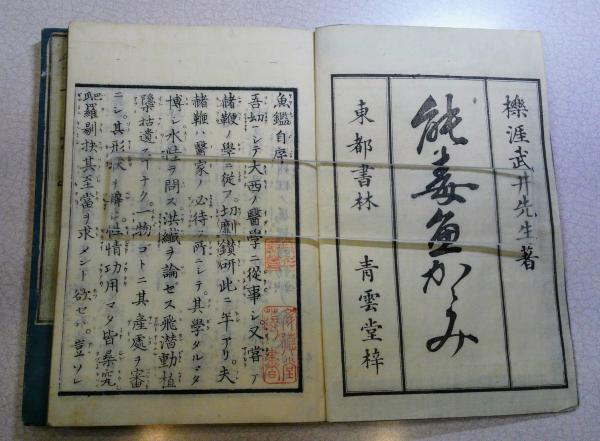 櫟涯武井先生著
能毒魚かゞみ
東都書林　青雲堂梓
魚鑑自序
吾幼ニシテ大西ノ醫學ニ從事シ又嘗テ
赭鞭ノ學ニ從フ切劘鑽研此ニ年アリ。夫
赭鞭ハ醫家ノ必待ツ所ニシテ。其學タルマタ
博シ水陸ヲ問ス洪纎ヲ論セス飛潜動植
隠括遺スナク。一物コトニ其産處ヲ審
ニシ。其形状ヲ辨シ。性情功用マタ皆尋究
爬羅剔抉其至當ヲ求メント欲セハ。豈ソレ